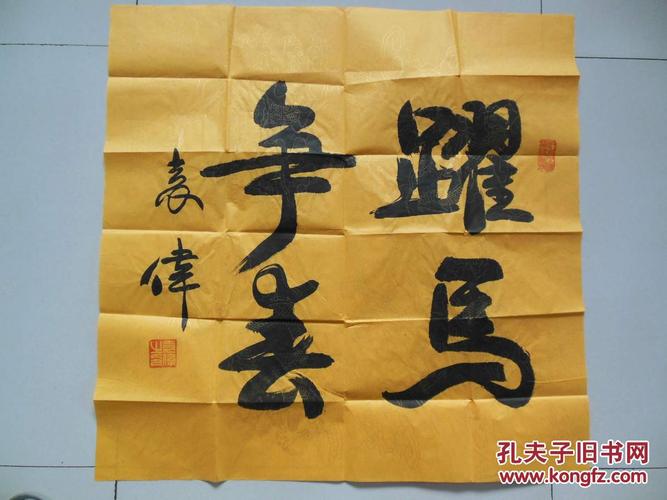 躍馬
争春
袁偉
孔夫子旧书网
www.kongfz.com